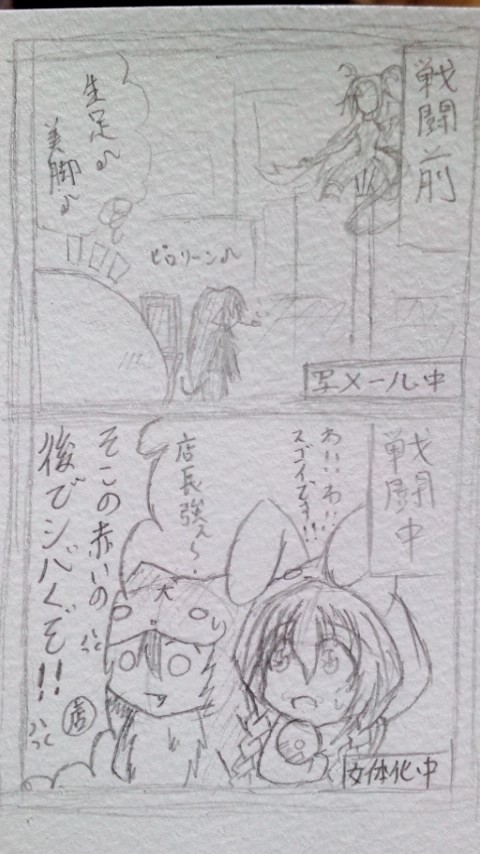 戦闘前
生足♪
美脚♪
ピロリーン♪
写メール中
戦闘中
わいいわいい
スゴイです!!
店長強ぇ〜
犬
そこの赤いの
後でシバくぞ!!
店
女体化中